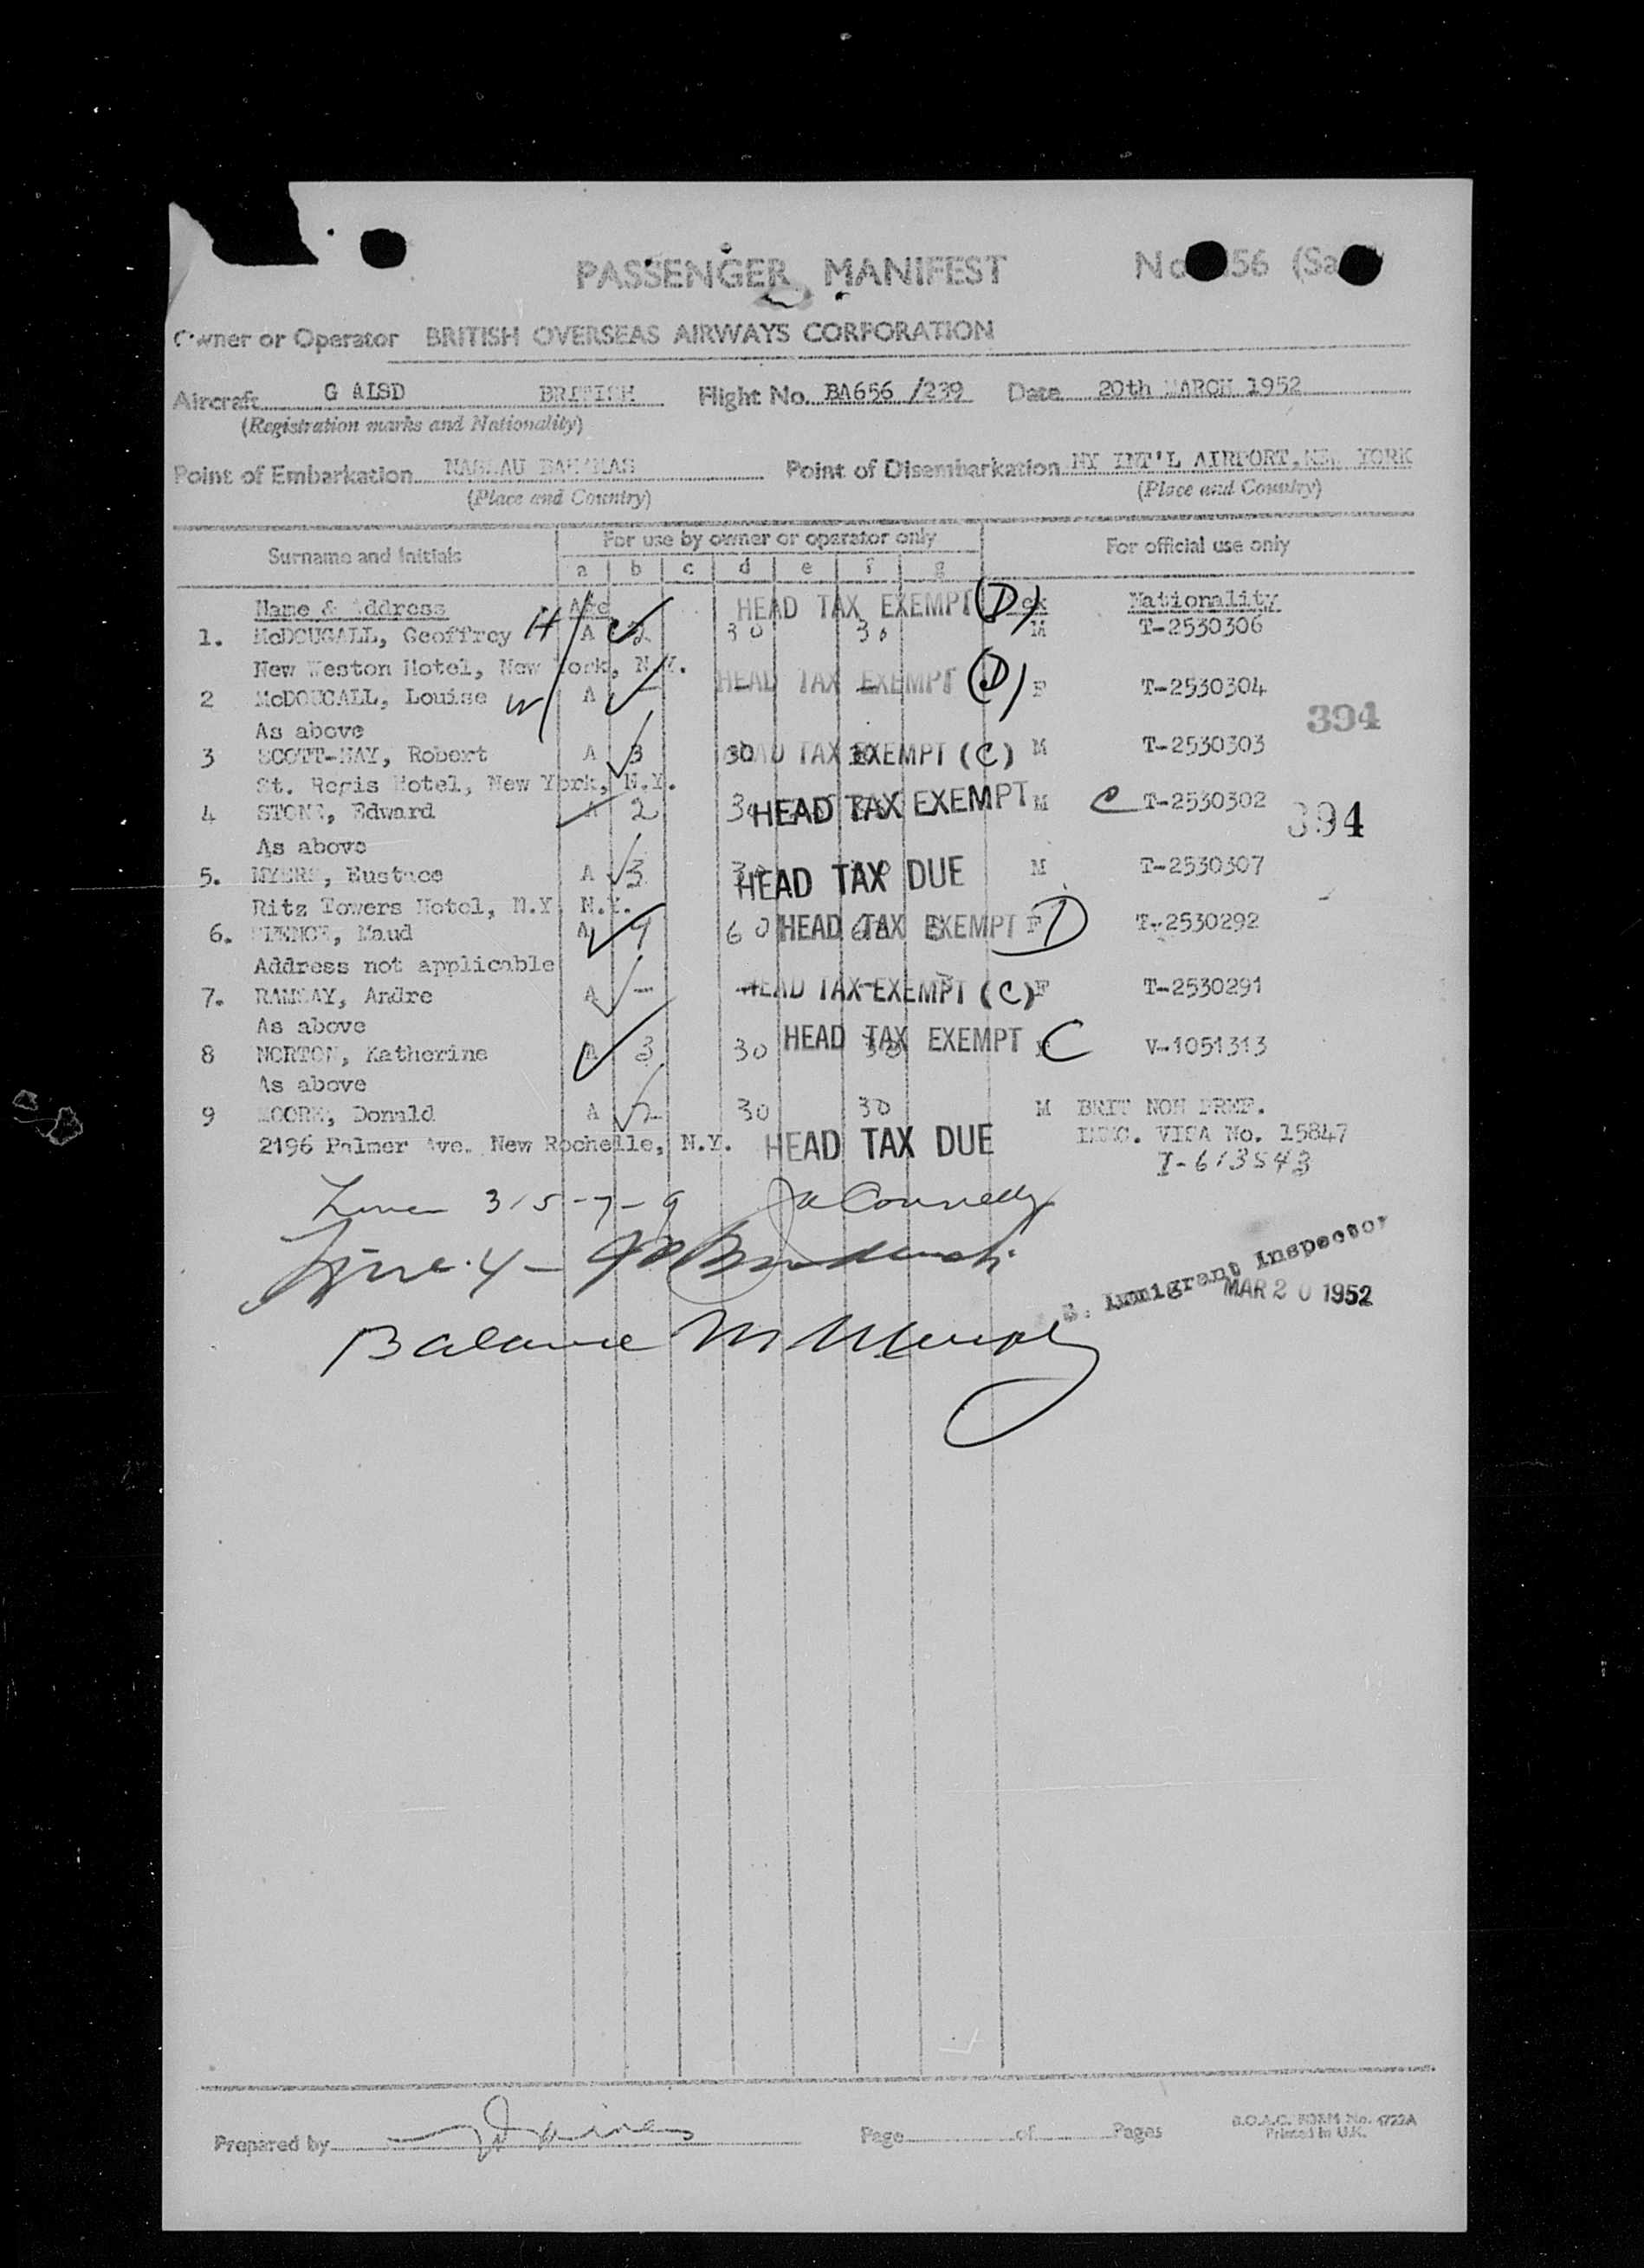 PASSENGER MANIFEST
Owner or Operator BRITISH OVERSEAS AIRWAYS CORPORATION
Aircraft G ALSD BRITISH Flight No. BA656 /239 Date 20th MARCH 1952
(Registration marks and Nationality)
Point of Embarkation NASSAU BAHAMAS Point of Disembarkation NY INT'L AIRPORT, NEW YORK
(Place and Country) (Place and Country)
Surname and Initials For use by owner or operator only For official use only
a b c d e f g
Name & Address Age HEAD TAX EXEMPT (D) Sex Nationality
1. McDOUGALL, Geoffrey H A 2 30 30 M T-2530306
New Weston Hotel, New York, N.Y. HEAD TAX EXEMPT (D)
2 McDOUGALL, Louise W A — F T-2530304
As above 394
3 SCOTT-HAY, Robert A 3 30 HEAD TAX EXEMPT (C) M T-2530303
St. Regis Hotel, New York, N.Y.
4 STONE, Edward A 2 30 HEAD TAX EXEMPT M C T-2530302 394
As above
5. MYERS, Eustace A 3 HEAD TAX DUE M T-2530307
Ritz Towers Hotel, N.Y. N.Y.
6. Maud A 4 60 HEAD TAX EXEMPT F D T-2530292
Address not applicable
7. RAMSAY, Andre A — HEAD TAX EXEMPT (C) F T-2530291
As above
8 NORTON, Katherine A 3 30 HEAD TAX EXEMPT C V-1051313
As above
9 MOORE, Donald A 2 30 30 M BRIT NON PREF.
2196 Palmer Ave. New Rochelle, N.Y. HEAD TAX DUE IMMG. VISA No. 15847
I-613543
Lines 3-5-7-9 Connelly
Line 4 -
Balance M Murphy
Immigrant Inspector
MAR 20 1952
Prepared by Page of Pages
B.O.A.C. FORM No. 4722A
Printed in U.K.